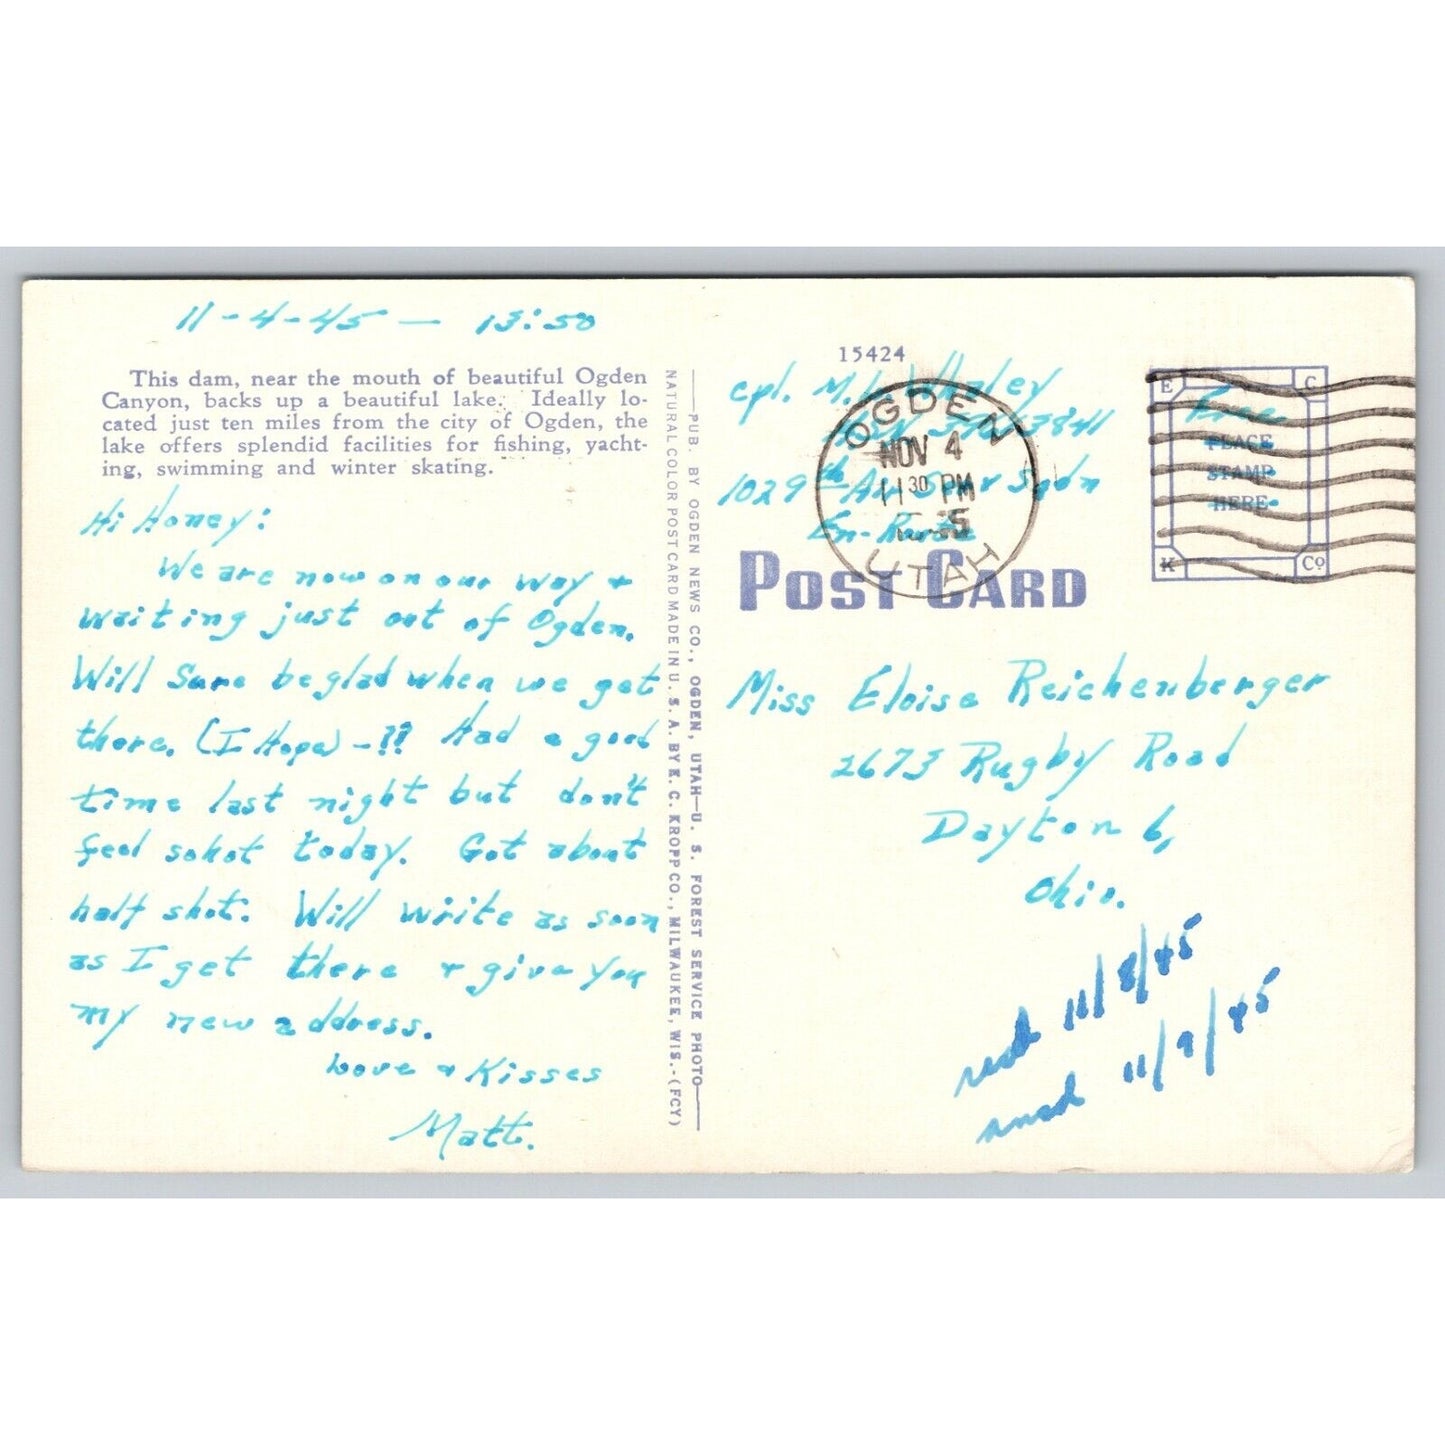 11-4-45 — 13:50
This dam, near the mouth of beautiful Ogden
Canyon, backs up a beautiful lake. Ideally lo-
cated just ten miles from the city of Ogden, the
lake offers splendid facilities for fishing, yacht-
ing, swimming and winter skating.
Hi Honey:
We are now on our way +
waiting just out of Ogden.
Will Sure be glad when we get
there. (I Hope) - !! Had a good
time last night but don't
feel so hot today. Got about
half shot. Will write as soon
as I get there + give you
my new address.
Love + Kisses
Matt.
PUB. BY OGDEN NEWS CO., OGDEN, UTAH—U. S. FOREST SERVICE PHOTO
NATURAL COLOR POST CARD MADE IN U. S. A. BY E. C. KROPP CO., MILWAUKEE, WIS.-(FCY)
15424
cpl. M.L. Whaley
1029th Air Serv Sqdn
En-Route
OGDEN
NOV 4
11 30 PM
UTAH
E C
Free
PLACE
STAMP
HERE
K Co
POST CARD
Miss Eloise Reichenberger
2673 Rugby Road
Dayton 6,
Ohio.
recd 11/8/45
ansd 11/9/45